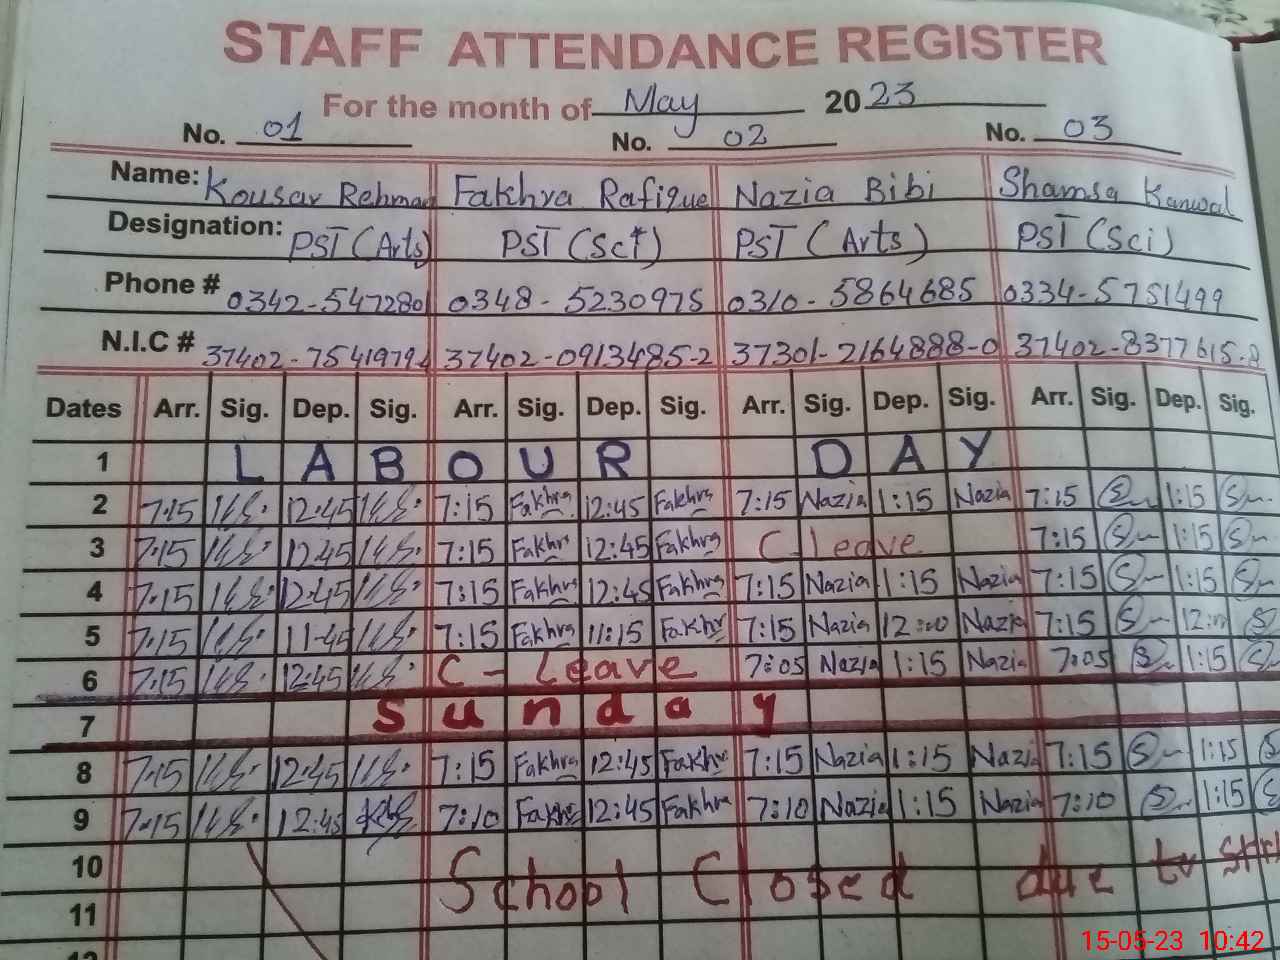 STAFF ATTENDANCE REGISTER
For the month of May 2023
No. 01 No. 02 No. 03
Name: Kousar Rehman Fakhra Rafique Nazia Bibi Shamsa Kanwal
Designation: PST (Arts) PST (Sci) PST (Arts) PST (Sci)
Phone # 0342-547280 0348-5230975 0310-5864685 0334-5751499
N.I.C # 37402-7541979 37402-0913485-2 37301-2164888-0 37402-8377615-8
Dates Arr. Sig. Dep. Sig. Arr. Sig. Dep. Sig. Arr. Sig. Dep. Sig. Arr. Sig. Dep. Sig.
1 LABOUR DAY
2 7:15 12:45 7:15 Fakhra 12:45 Fakhra 7:15 Nazia 1:15 Nazia 7:15 1:15
3 7:15 12:45 7:15 Fakhra 12:45 Fakhra C leave 7:15 1:15
4 7:15 12:45 7:15 Fakhra 12:45 Fakhra 7:15 Nazia 1:15 Nazia 7:15 1:15
5 7:15 11:45 7:15 Fakhra 11:15 Fakhra 7:15 Nazia 12:00 Nazia 7:15
6 7:15 12:45 C - Leave 7:05 Nazia 1:15 Nazia 7:05 1:15
7 Sunday
8 7:15 12:45 7:15 Fakhra 12:45 Fakhra 7:15 Nazia 1:15 Nazia 7:15 1:15
9 7:15 12:45 7:10 Fakhra 12:45 Fakhra 7:10 Nazia 1:15 Nazia 7:10 1:15
10 School Closed due to
11
12
15-05-23 10:42